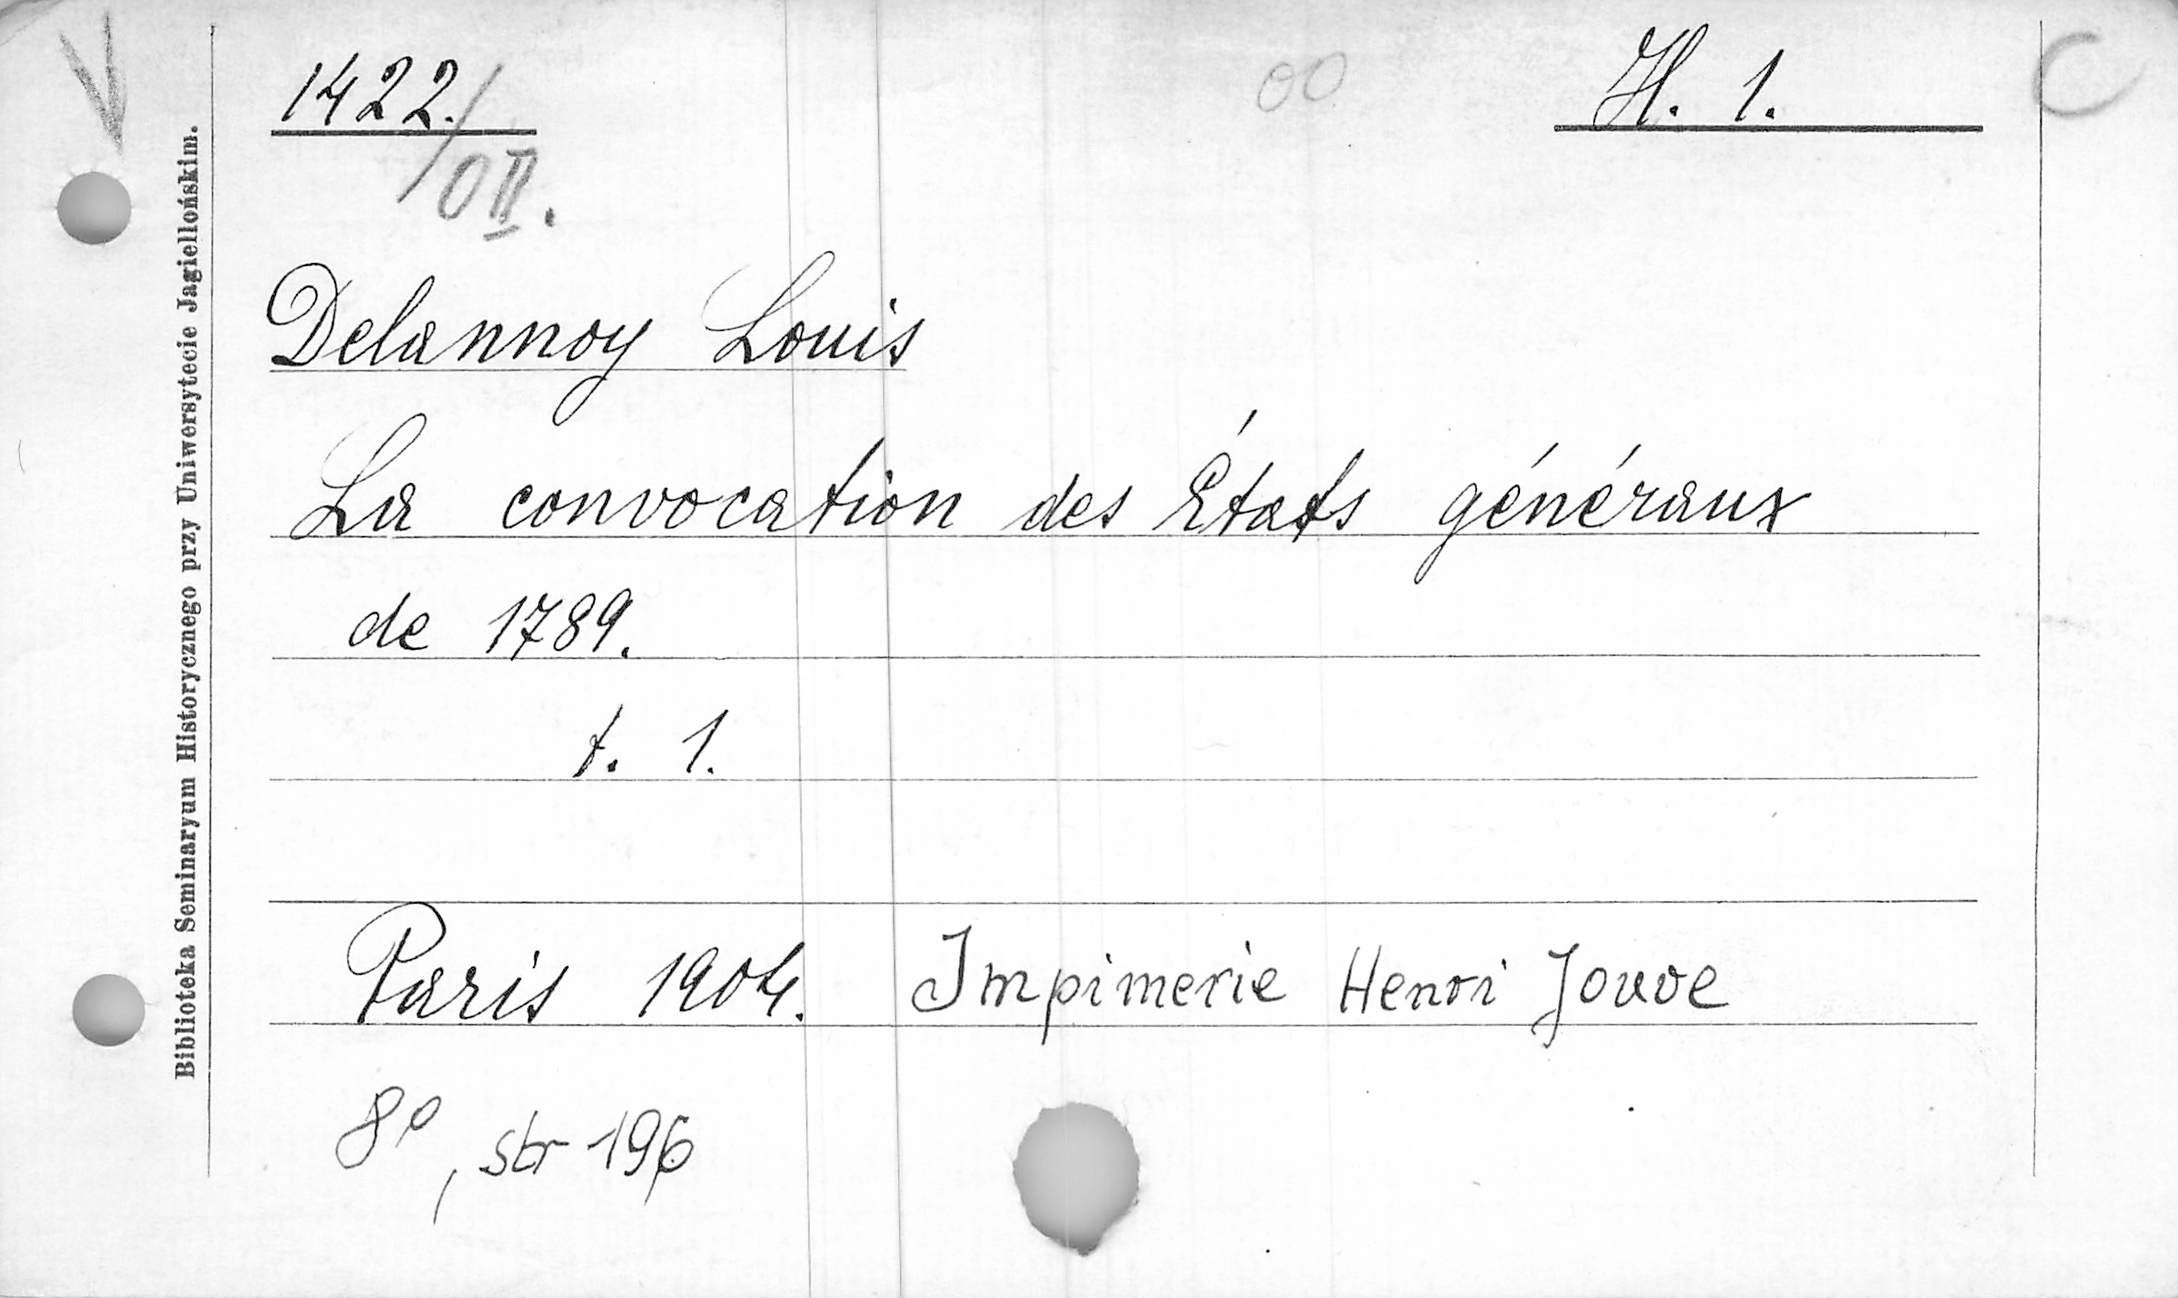 1422./OII.
00
H. 1.
C
Delannoy Louis
La convocation des États généraux
de 1789.
t. 1.
Paris 1904. Impimerie Henri Jouve
8°, str 196
Biblioteka Seminaryum Historycznego przy Uniwersytecie Jagiellońskim.